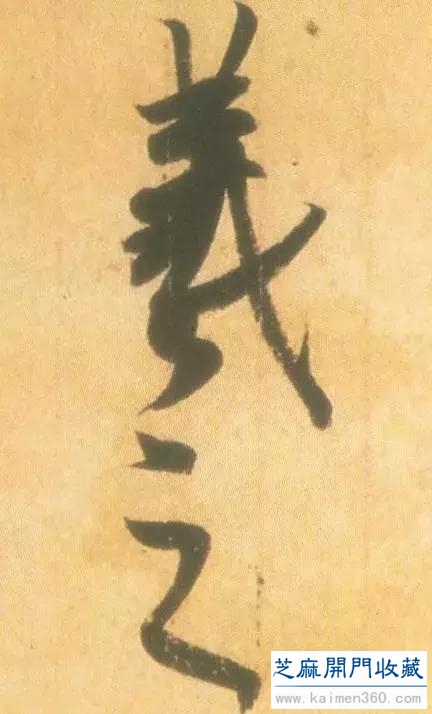 羲之
芝麻開門收藏
www.kaimen360.com